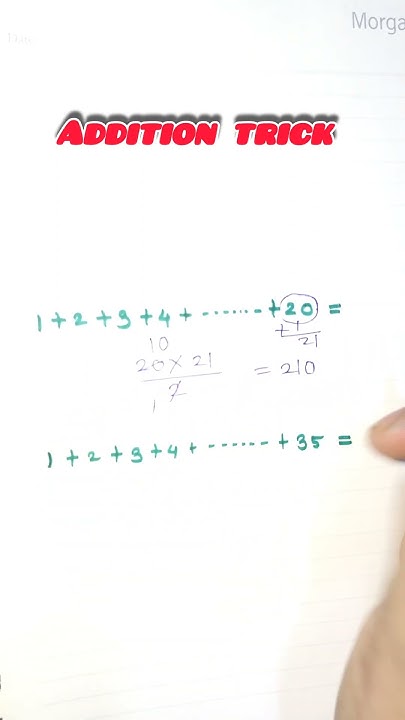 Morga
ADDITION TRICK
1 + 2 + 3 + 4 + ······· + 20 =
+1
21
10
20 × 21
1 2
= 210
1 + 2 + 3 + 4 + ······· + 35 =